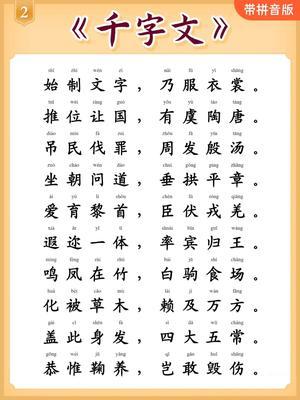 2
带拼音版
《千字文》
shǐ zhì wén zì nǎi fú yī shang
始制文字，乃服衣裳。
tuī wèi ràng guó yǒu yú táo táng
推位让国，有虞陶唐。
diào mín fá zuì zhōu fā yīn tāng
吊民伐罪，周发殷汤。
zuò cháo wèn dào chuí gǒng píng zhāng
坐朝问道，垂拱平章。
ài yù lí shǒu chén fú róng qiāng
爱育黎首，臣伏戎羌。
xiá ěr yì tǐ shuài bīn guī wáng
遐迩一体，率宾归王。
míng fèng zài zhú bái jū shí chǎng
鸣凤在竹，白驹食场。
huà bèi cǎo mù lài jí wàn fāng
化被草木，赖及万方。
gài cǐ shēn fà sì dà wǔ cháng
盖此身发，四大五常。
gōng wéi jū yǎng qǐ gǎn huǐ shāng
恭惟鞠养，岂敢毁伤。